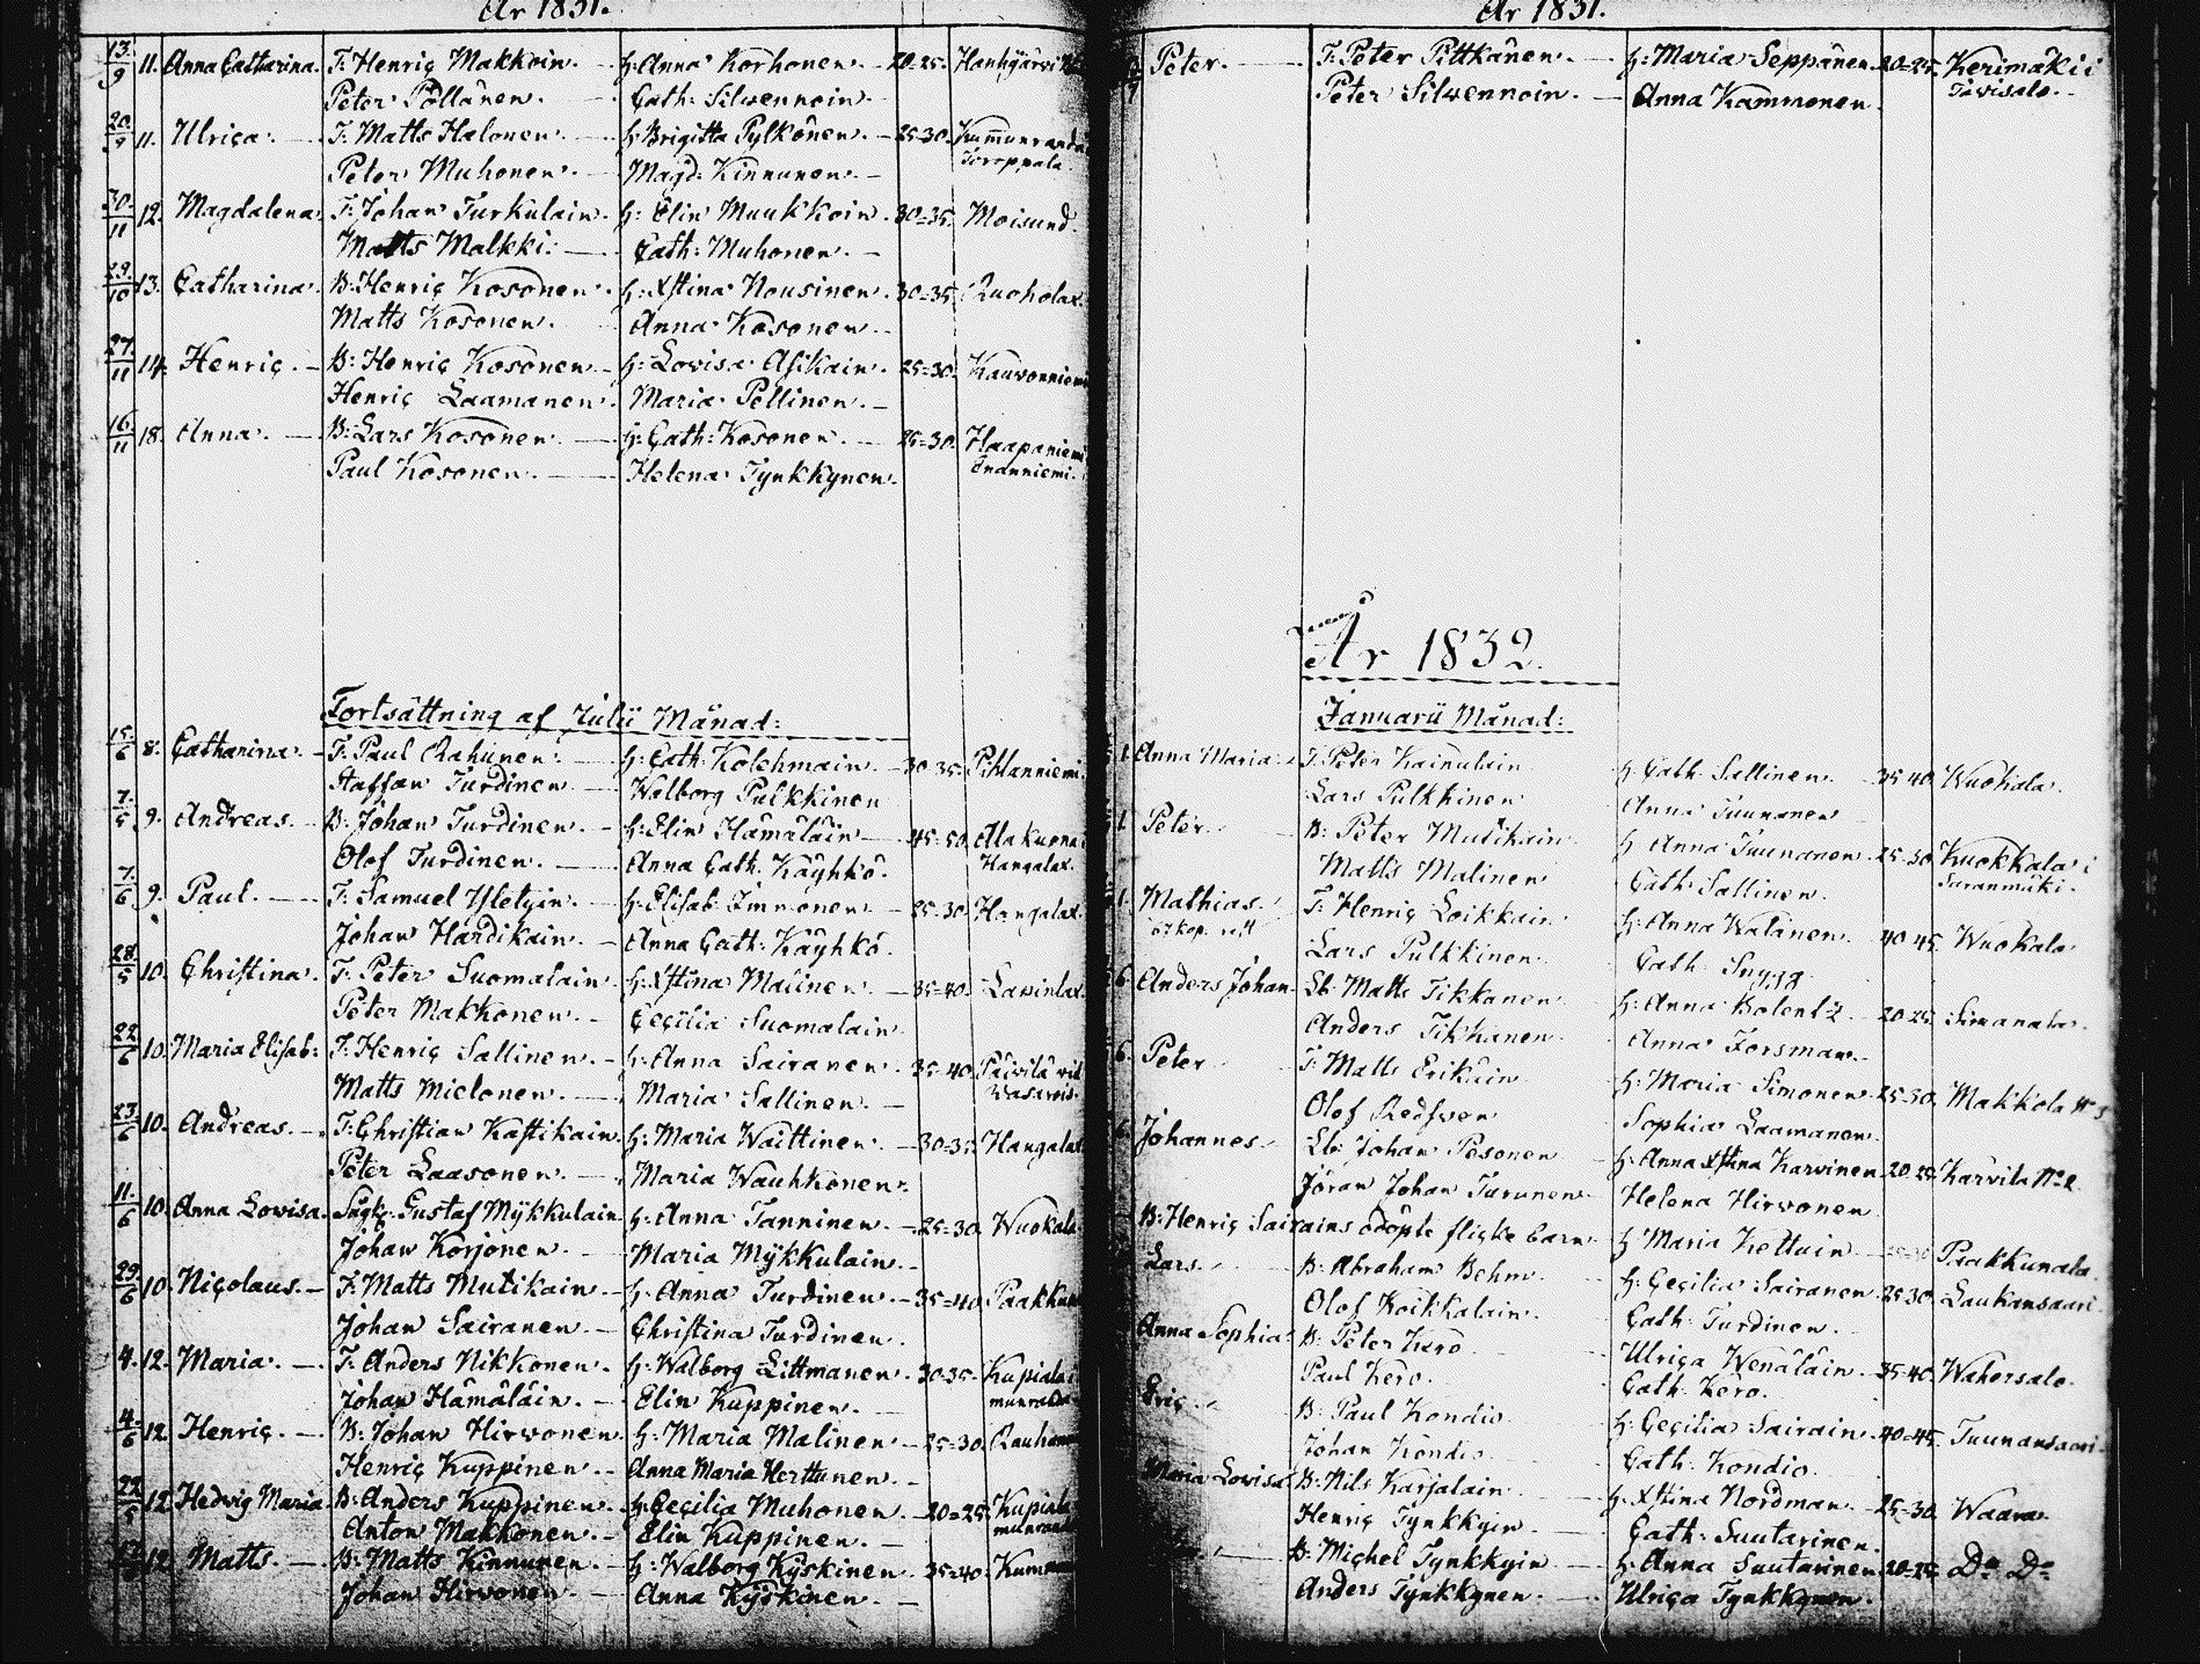 År 1831.
13/9 11. Anna Catharina. T. Henriç Makkoin. h: Anna Korhonen. 20-25. Hanhijärvi
Peter Pöllänen. Cath: Silvennoin.
20/9 11. Ulriça. T. Matts Halonen. h: Brigitta Pylkönen. 25-30. Kummunranda
Peter Muhonen. Magd: Kinnunen. Toroppala.
30/11 12. Magdalena. T. Johan Turkulain. h: Elin Muukkoin. 30-35. Moisund.
Matts Malkki. Cath: Muhonen.
29/10 13. Catharina. B: Henriç Kosonen. h: Xstina Nousinen. 30-35. Ruoholax.
Matts Kosonen. Anna Kosonen.
27/11 14. Henriç. B: Henriç Kosonen. h: Lovisa Asikain. 25-30. Kauvonniemi
Henriç Laamanen. Maria Pellinen.
16/11 18. Anna. B: Lars Kosonen. h: Cath: Kosonen. 25-30. Haapaniemi
Paul Kosonen. Helena Tynkkynen. Enanniemi.
Fortsättning af Julii Månad:
15/6 8. Catharina. T. Paul Rahunen. h: Cath: Kolehmain. 30-35. Pihlanniemi.
Staffan Turdinen. Walborg Pulkkinen
7/5 9. Andreas. B: Johan Turdinen. h: Elin Hämäläin 45-50. Alakuona
Olof Turdinen. Anna Cath: Käyhkö. Hangalax.
7/6 9. Paul. T. Samuel Yletyin. h: Elisab: Immonen. 25-30. Hangalax.
Johan Hardikain. Anna Cath: Käyhkö.
28/5 10. Christina. T. Peter Suomalain. h: Xstina Mäünen. 35-40. Lavinlax.
Peter Makkonen. Ceçilia Suomalain
22/6 10. Maria Elisab: T. Henriç Sallinen. h: Anna Sairanen. 35-40. Päivilä vid
Matts Mielonen. Maria Sallinen.
23/6 10. Andreas. T. Christian Kastikain. h: Maria Waittinen. 30-35. Hangalax
Peter Laasonen. Maria Wauhkonen.
11/6 10. Anna Lovisa. Gustaf Mykkulain h: Anna Tanninen. 25-30. Wuokala
Johan Korjonen. Maria Mykkulain.
29/6 10. Niçolaus. T. Matts Mutikain. h: Anna Turdinen. 35-40.
Johan Sairanen. Christina Turdinen.
4. 12. Maria. T. Anders Nikkonen. h: Walborg Littmanen. 30-35. Kupiala
Johan Hämäläin. Elin Kuppinen.
4/6 12. Henriç. B: Johan Hirvonen h: Maria Malinen 25-30.
Henriç Kuppinen. Anna Maria Herttunen.
22/5 12. Hedvig Maria B: Anders Kuppinen. h: Ceçilia Muhonen. 20-25. Kupiala
Anton Makkonen. Elin Kuppinen.
12. Matts. B: Matts Kinnunen. h: Walborg Kyskinen. 35-40.
Johan Hirvonen. Anna Kyskinen.
År 1831.
Peter. T. Peter Pittkänen. h: Maria Seppänen. 20-25. Kerimäki i
Peter Silvennoin. Anna Kammonen. Tavisalo.
År 1832.
Januarii Månad:
1. Anna Maria. T. Peter Kainulain h: Cath: Sallinen. 35-40. Wuokala.
Lars Pulkkinen Anna Tuunanen
1. Peter. B: Peter Mutikain h: Anna Tuunanen. 25-30. Kuokkala i
Matts Malinen Cath: Sallinen. Saranmäki.
1. Mathias. T. Henriç Loikkain h: Anna Walanen. 40-45. Wuokala
Lars Pulkkinen. Cath: Snygg.
6. Anders Johan. Lb: Matts Tikkanen h: Anna Bolentz. 20-25. Simanala.
Anders Tikkanen. Anna Forsman.
6. Peter T. Matts Erikäin h: Maria Simonen. 25-30. Makkola
Olof Redsven Sophia Laamanen.
6. Johannes. Lb: Johan Pesonen h: Anna Xstina Karvinen. 20-25. Karvila No 2.
Jöran Johan Turunen. Helena Hirvonen
B: Henriç Sairains odöpte fliçke barn. h: Maria Kettuin Paakkunala.
Lars. B: Abraham Behm. h: Ceçilia Sairanen. 25-30. Laukansaari.
Olof Koikkalain. Cath: Turdinen.
Anna Sophia. B: Peter Kero Ulriça Wenäläin. 35-40. Wahersalo.
Paul Kero. Cath: Kero.
Eriç. B: Paul Kondio h: Ceçilia Sairain. 40-45. Tuunansaari.
Johan Kondio Cath: Kondio.
Maria Lovisa. B: Nils Karjalain. h: Xstina Nordman. 25-30. Waara.
Henriç Tynkkyin. Cath: Suutarinen.
B: Miçhel Tynkkyin h: Anna Suutarinen. 20-25. Do Do
Anders Tynkkynen. Ulriça Tynkkynen.